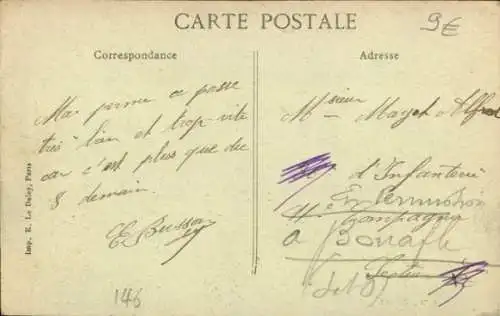 CARTE POSTALE
9€
Correspondance
Adresse
Ma perme a passé
très bien et trop vite
car c'est plus que du
8 demain.
E. Busson
Msieur
M Mayet Alfred
d'Infanterie
En Permission
4e Compagnie
a Bonafle
Imp. E. Le Deley, Paris
146